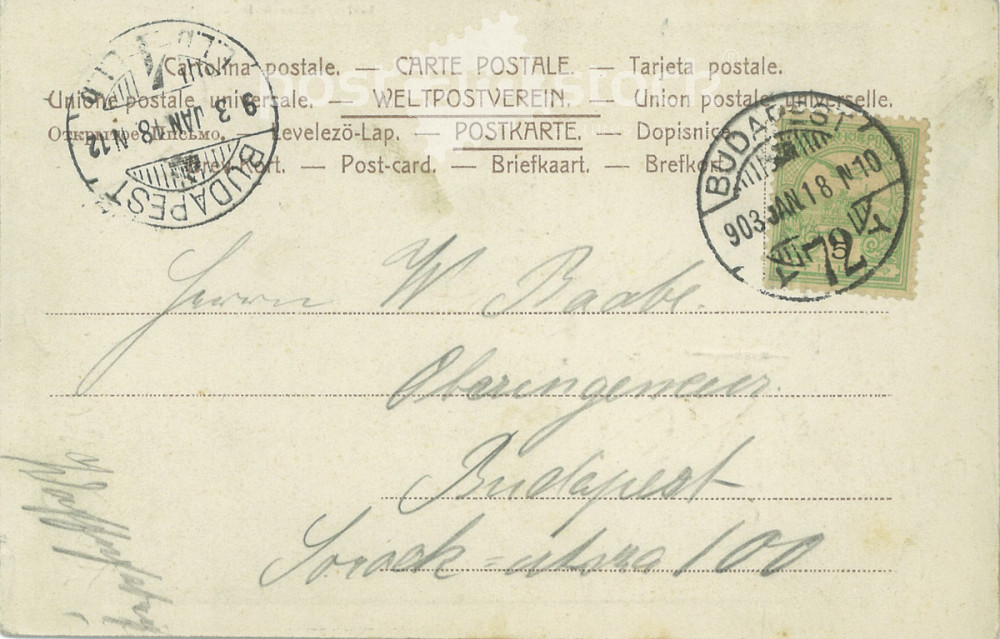 Cartolina postale. — CARTE POSTALE. — Tarjeta postale.
Unione postale universale. — WELTPOSTVEREIN. — Union postale universelle.
Открытое Письмо. — Levelező-Lap. — POSTKARTE. — Dopisnice
Brev-Kort. — Post-card. — Briefkaart. — Brefkort
BUDAPEST
903 JAN 18 N 10
72
BUDAPEST
9 3 JAN 18 N 12
Herrn W Raabe.
Oberingenieur.
Budapest
utcza 100